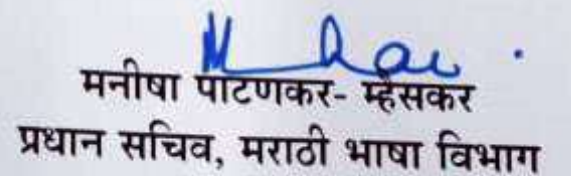 मनीषा पाटणकर- म्हैसकर
प्रधान सचिव, मराठी भाषा विभाग